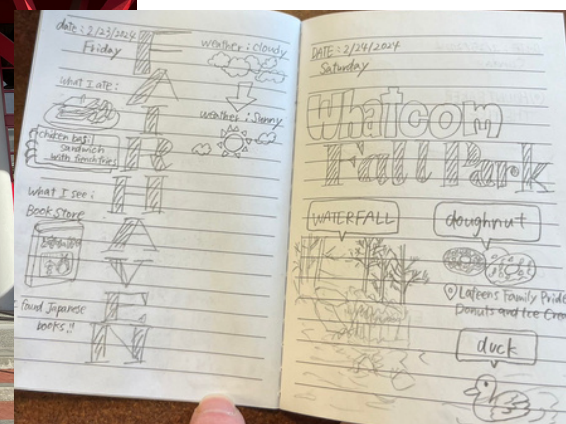 date: 2/23/2024
Friday
FAIRHAVEN
weather: cloudy
weather: Sunny
what I ate:
chicken basil
sandwich
with french fries
What I see:
Book Store
found Japanese
books!!
DATE: 2/24/2024
Saturday
Whatcom
Fall Park
WATERFALL
doughnut
Lafeens Family Pride
Donuts and Ice Crea
duck